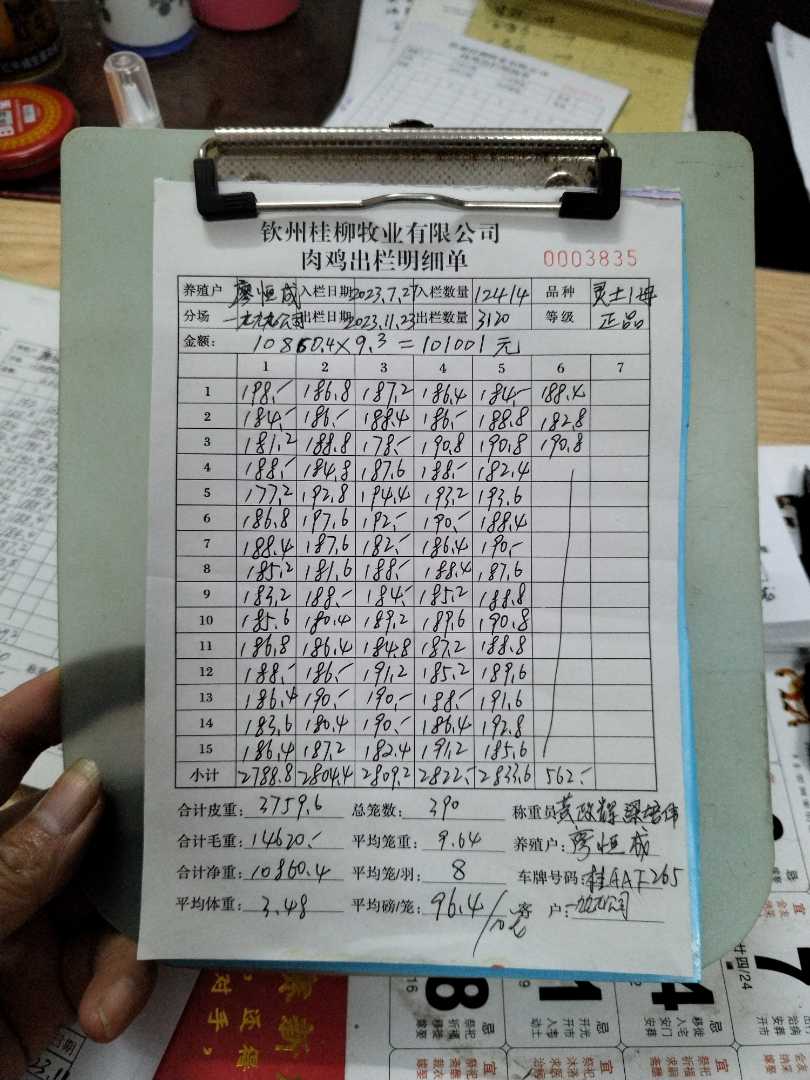 钦州桂柳牧业有限公司
肉鸡出栏明细单 0003835
养殖户 廖恒成 入栏日期 2023.7.27 入栏数量 12414 品种 灵土1号
分场 出栏日期 2023.11.23 出栏数量 3120 等级 正品
金额: 10860.4×9.3=101001元
1 2 3 4 5 6 7
1 198.- 186.8 187.2 186.4 184.- 188.4
2 184.- 186.- 188.4 186.- 188.8 182.8
3 181.2 188.8 178.- 190.8 190.8 190.8
4 188.- 184.8 187.6 188.- 182.4
5 177.2 192.8 194.4 193.2 193.6
6 186.8 197.6 192.- 190.- 188.4
7 188.4 187.6 182.- 186.4 190.-
8 185.2 181.6 188.- 188.4 187.6
9 183.2 188.- 184.- 185.2 188.8
10 185.6 180.4 189.2 189.6 190.8
11 186.8 186.4 184.8 187.2 188.8
12 188.- 186.- 191.2 185.2 189.6
13 186.4 190.- 190.- 188.- 191.6
14 183.6 180.4 190.- 186.4 192.8
15 186.4 187.2 182.4 191.2 185.6
小计 2788.8 2804.4 2809.2 2822.- 2833.6 562.-
合计皮重: 3759.6 总笼数: 390 称重员
合计毛重: 14620.- 平均笼重: 9.64 养殖户: 廖恒成
合计净重: 10860.4 平均笼/羽: 8 车牌号码: 桂AAF265
平均体重: 3.48 平均磅/笼: 96.4 客 户: